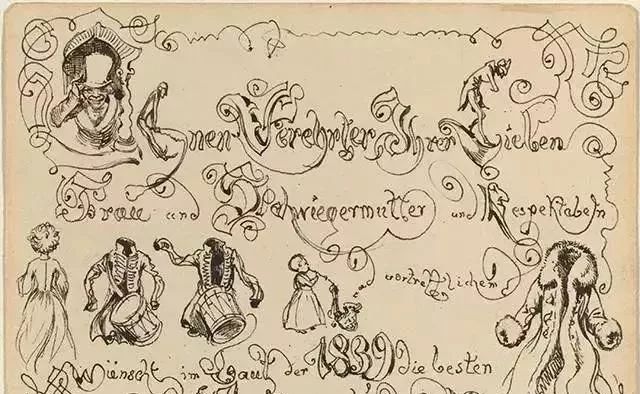 Ihnen Verehrter, Ihrer Lieben
Frau und Schwiegermutter und Respektabeln
und vortrefflichem
Wünscht im Lauf der 1839 die besten